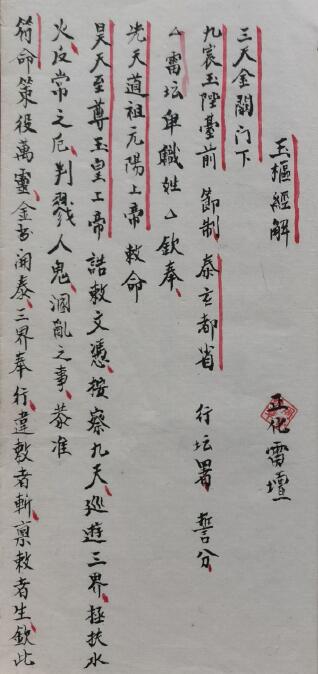 玉樞經解
正化雷壇
三天金闕门下
九宸玉陛臺前 節制 泰玄都省 行坛署 誓分
厶雷坛卑職姓厶欽奉
先天道祖元陽上帝敕命
昊天至尊玉皇上帝誥敕文憑按察九天巡遊三界拯扶水
火反常之厄判 人鬼溷亂之事恭准
符命策役萬靈金書闻泰三界奉行違敕者斬禀敕者生欽此